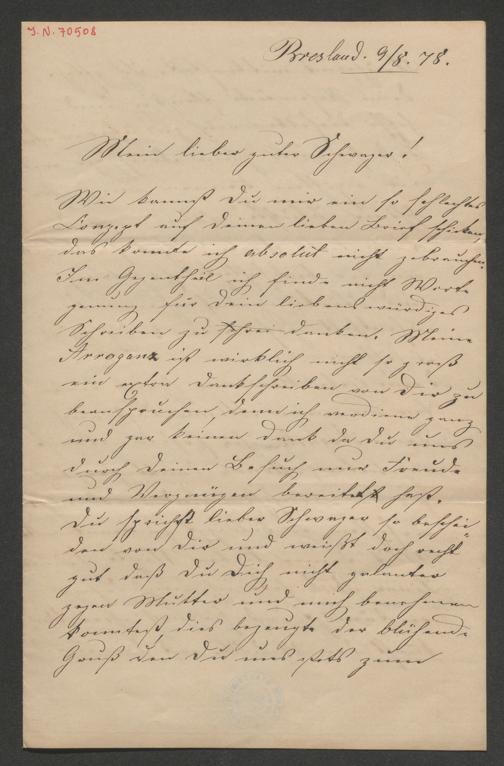 J.N. 70508
Bresland. 9/8. 78.
Mein lieber guter Schwager!
Wie kannst Du mir ein so schlechtes
Conzept auf Deinen lieben Brief schicken,
das konnte ich absolut nicht gebrauchen.
Im Gegentheil ich finde nicht Worte
genung für Dein liebenswürdiges
Schreiben zu danken. Meine
Arroganz ist wirklich nicht so groß
ein extra Dankschreiben von Dir zu
beanspruchen, denn ich verdiene ganz
und gar keinen Dank da Du uns
durch Deinen Besuch nur Freude
und Vergnügen bereitet hast.
Du sprichst lieber Schwager so beschei-
den von Dir und weißt doch recht
gut daß Du Dich nicht galanter
gegen Mutter und mich benehmen
konntest, dies bezeugte der blühende
Gruß den Du uns stets zum